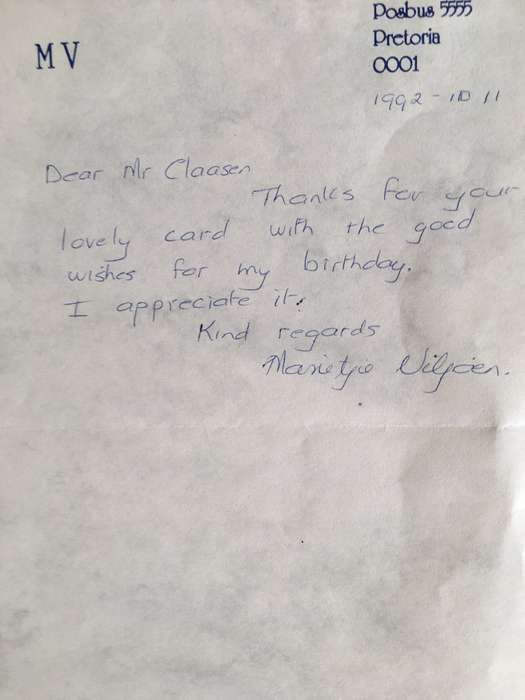 MV
Posbus 5555
Pretoria
0001
1992-10 11
Dear Mr Claasen
Thanks for your
lovely card with the good
wishes for my birthday.
I appreciate it.
Kind regards
Marietjie Viljoen.